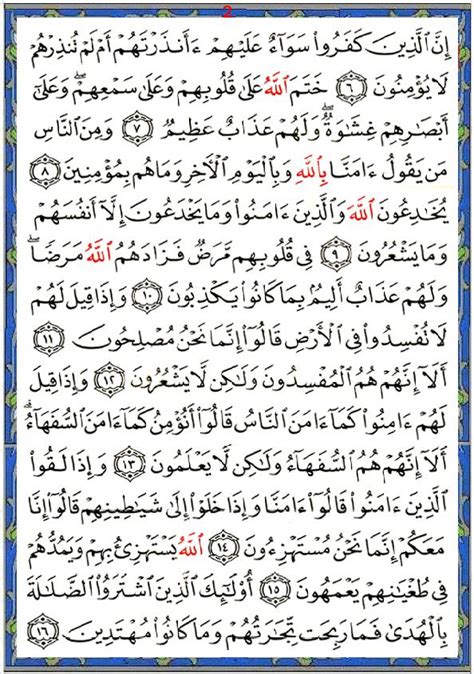 2
إِنَّ ٱلَّذِينَ كَفَرُوا۟ سَوَآءٌ عَلَيْهِمْ ءَأَنذَرْتَهُمْ أَمْ لَمْ تُنذِرْهُمْ
لَا يُؤْمِنُونَ ٦ خَتَمَ ٱللَّهُ عَلَىٰ قُلُوبِهِمْ وَعَلَىٰ سَمْعِهِمْ ۖ وَعَلَىٰٓ
أَبْصَٰرِهِمْ غِشَٰوَةٌ ۖ وَلَهُمْ عَذَابٌ عَظِيمٌ ٧ وَمِنَ ٱلنَّاسِ
مَن يَقُولُ ءَامَنَّا بِٱللَّهِ وَبِٱلْيَوْمِ ٱلْـَٔاخِرِ وَمَا هُم بِمُؤْمِنِينَ ٨
يُخَٰدِعُونَ ٱللَّهَ وَٱلَّذِينَ ءَامَنُوا۟ وَمَا يَخْدَعُونَ إِلَّآ أَنفُسَهُمْ
وَمَا يَشْعُرُونَ ٩ فِى قُلُوبِهِم مَّرَضٌ فَزَادَهُمُ ٱللَّهُ مَرَضًا ۖ
وَلَهُمْ عَذَابٌ أَلِيمٌۢ بِمَا كَانُوا۟ يَكْذِبُونَ ١٠ وَإِذَا قِيلَ لَهُمْ
لَا تُفْسِدُوا۟ فِى ٱلْأَرْضِ قَالُوٓا۟ إِنَّمَا نَحْنُ مُصْلِحُونَ ١١
أَلَآ إِنَّهُمْ هُمُ ٱلْمُفْسِدُونَ وَلَٰكِن لَّا يَشْعُرُونَ ١٢ وَإِذَا قِيلَ
لَهُمْ ءَامِنُوا۟ كَمَآ ءَامَنَ ٱلنَّاسُ قَالُوٓا۟ أَنُؤْمِنُ كَمَآ ءَامَنَ ٱلسُّفَهَآءُ ۗ
أَلَآ إِنَّهُمْ هُمُ ٱلسُّفَهَآءُ وَلَٰكِن لَّا يَعْلَمُونَ ١٣ وَإِذَا لَقُوا۟
ٱلَّذِينَ ءَامَنُوا۟ قَالُوٓا۟ ءَامَنَّا وَإِذَا خَلَوْا۟ إِلَىٰ شَيَٰطِينِهِمْ قَالُوٓا۟ إِنَّا
مَعَكُمْ إِنَّمَا نَحْنُ مُسْتَهْزِءُونَ ١٤ ٱللَّهُ يَسْتَهْزِئُ بِهِمْ وَيَمُدُّهُمْ
فِى طُغْيَٰنِهِمْ يَعْمَهُونَ ١٥ أُو۟لَٰٓئِكَ ٱلَّذِينَ ٱشْتَرَوُا۟ ٱلضَّلَٰلَةَ
بِٱلْهُدَىٰ فَمَا رَبِحَت تِّجَٰرَتُهُمْ وَمَا كَانُوا۟ مُهْتَدِينَ ١٦